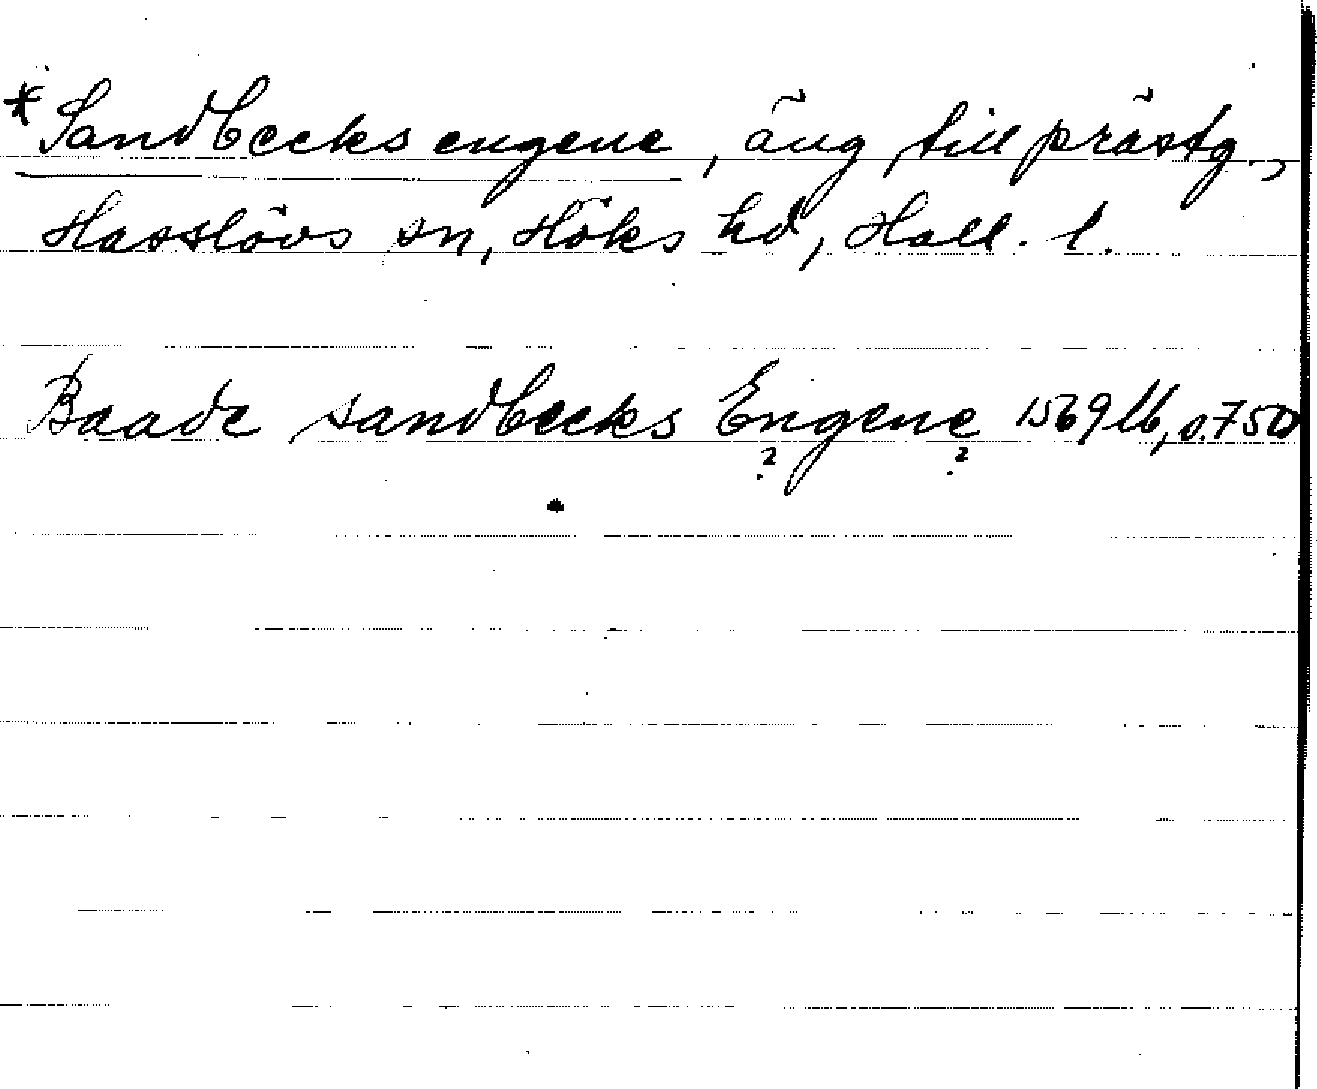 * Sandbecks engene, äng till prästg.,
Hasslövs sn, Höks hd, Hall. l.
Baade sandbecks Engene 1569 lb, s. 750
? ?